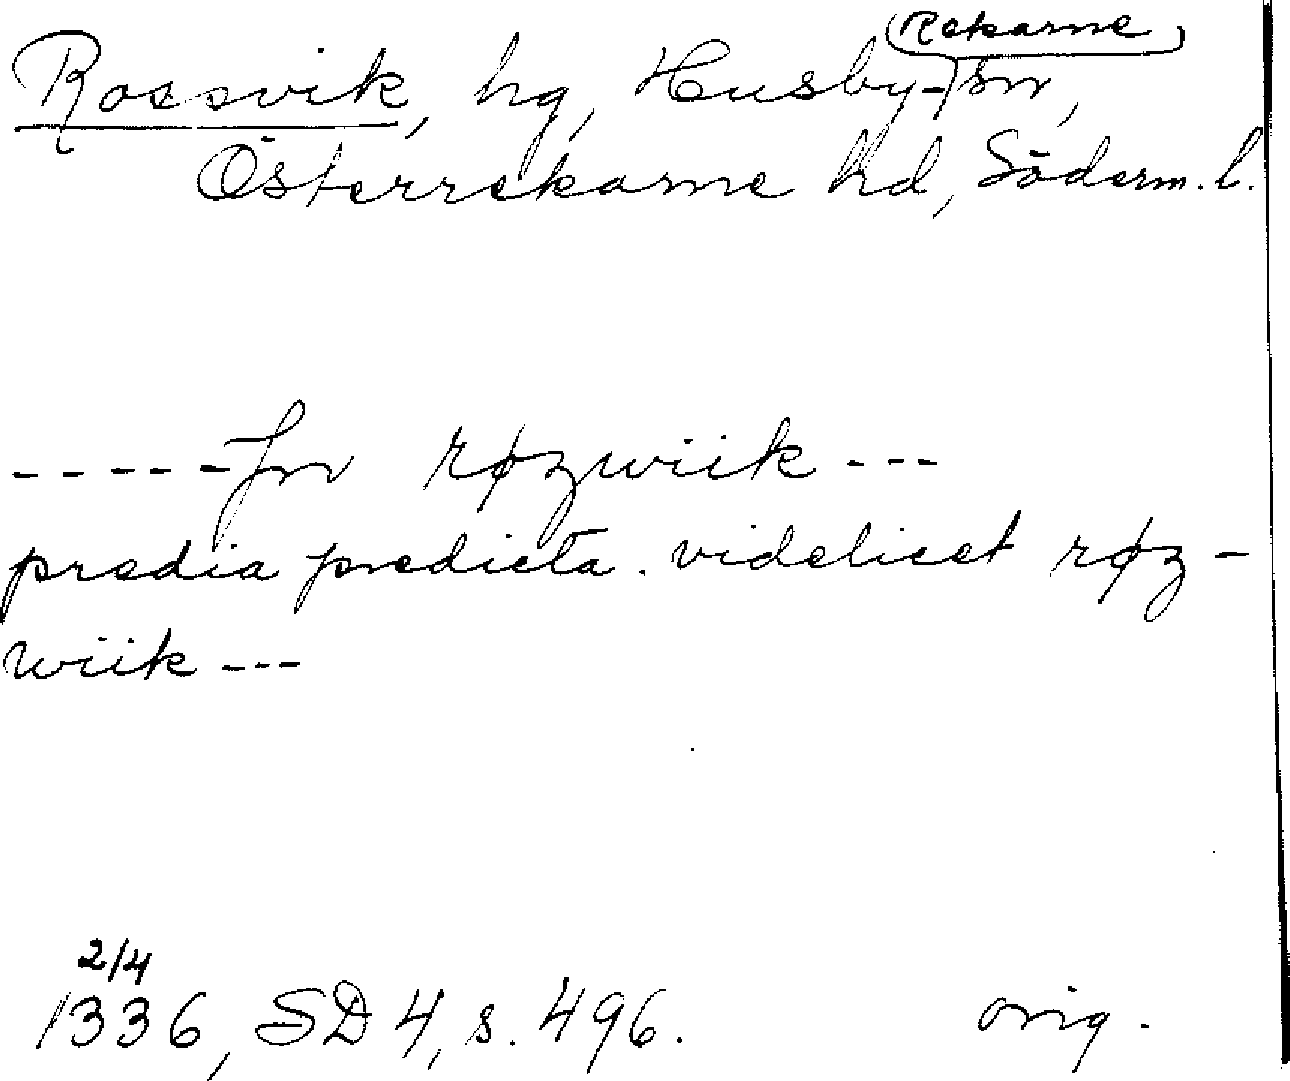 Rekarne
Rossvik, hg, Husby- sn,
Österrekarne hd, Söderm. l.
----- Jn røzwiik ---
predia predicta. videlicet røz-
wiik ---
2/4
1336, SD 4, s. 496. orig.